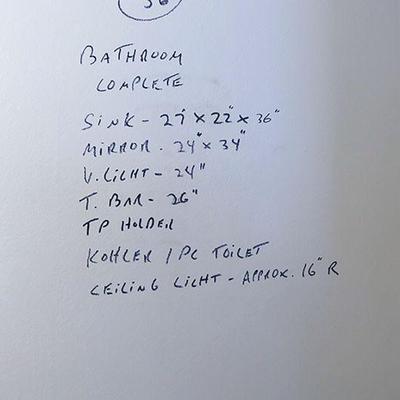 36
BATHROOM
COMPLETE
SINK - 27" x 22" x 36"
MIRROR. 24" x 34"
V. LIGHT - 24"
T. BAR - 26"
TP HOLDER
KOHLER 1 PC TOILET
CEILING LIGHT - APPROX. 16" R